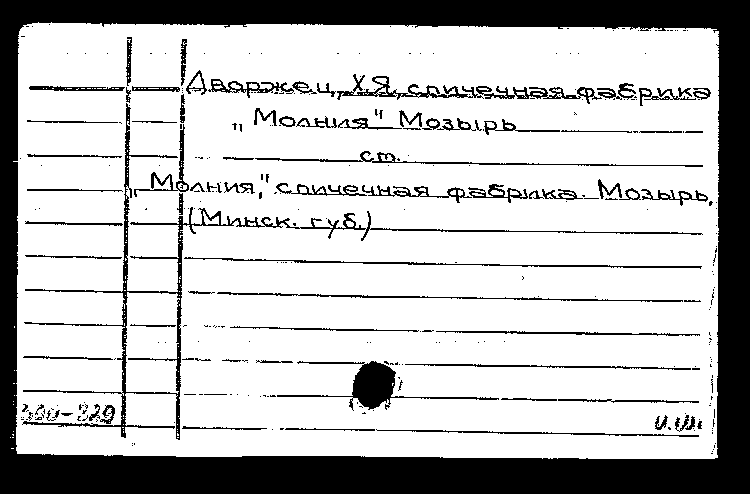 Дворжец, Х.Я, спичечная фабрика
„Молния" Мозырь
ст.
„Молния," спичечная фабрика. Мозырь,
(Минск. губ.)
И.Ш.